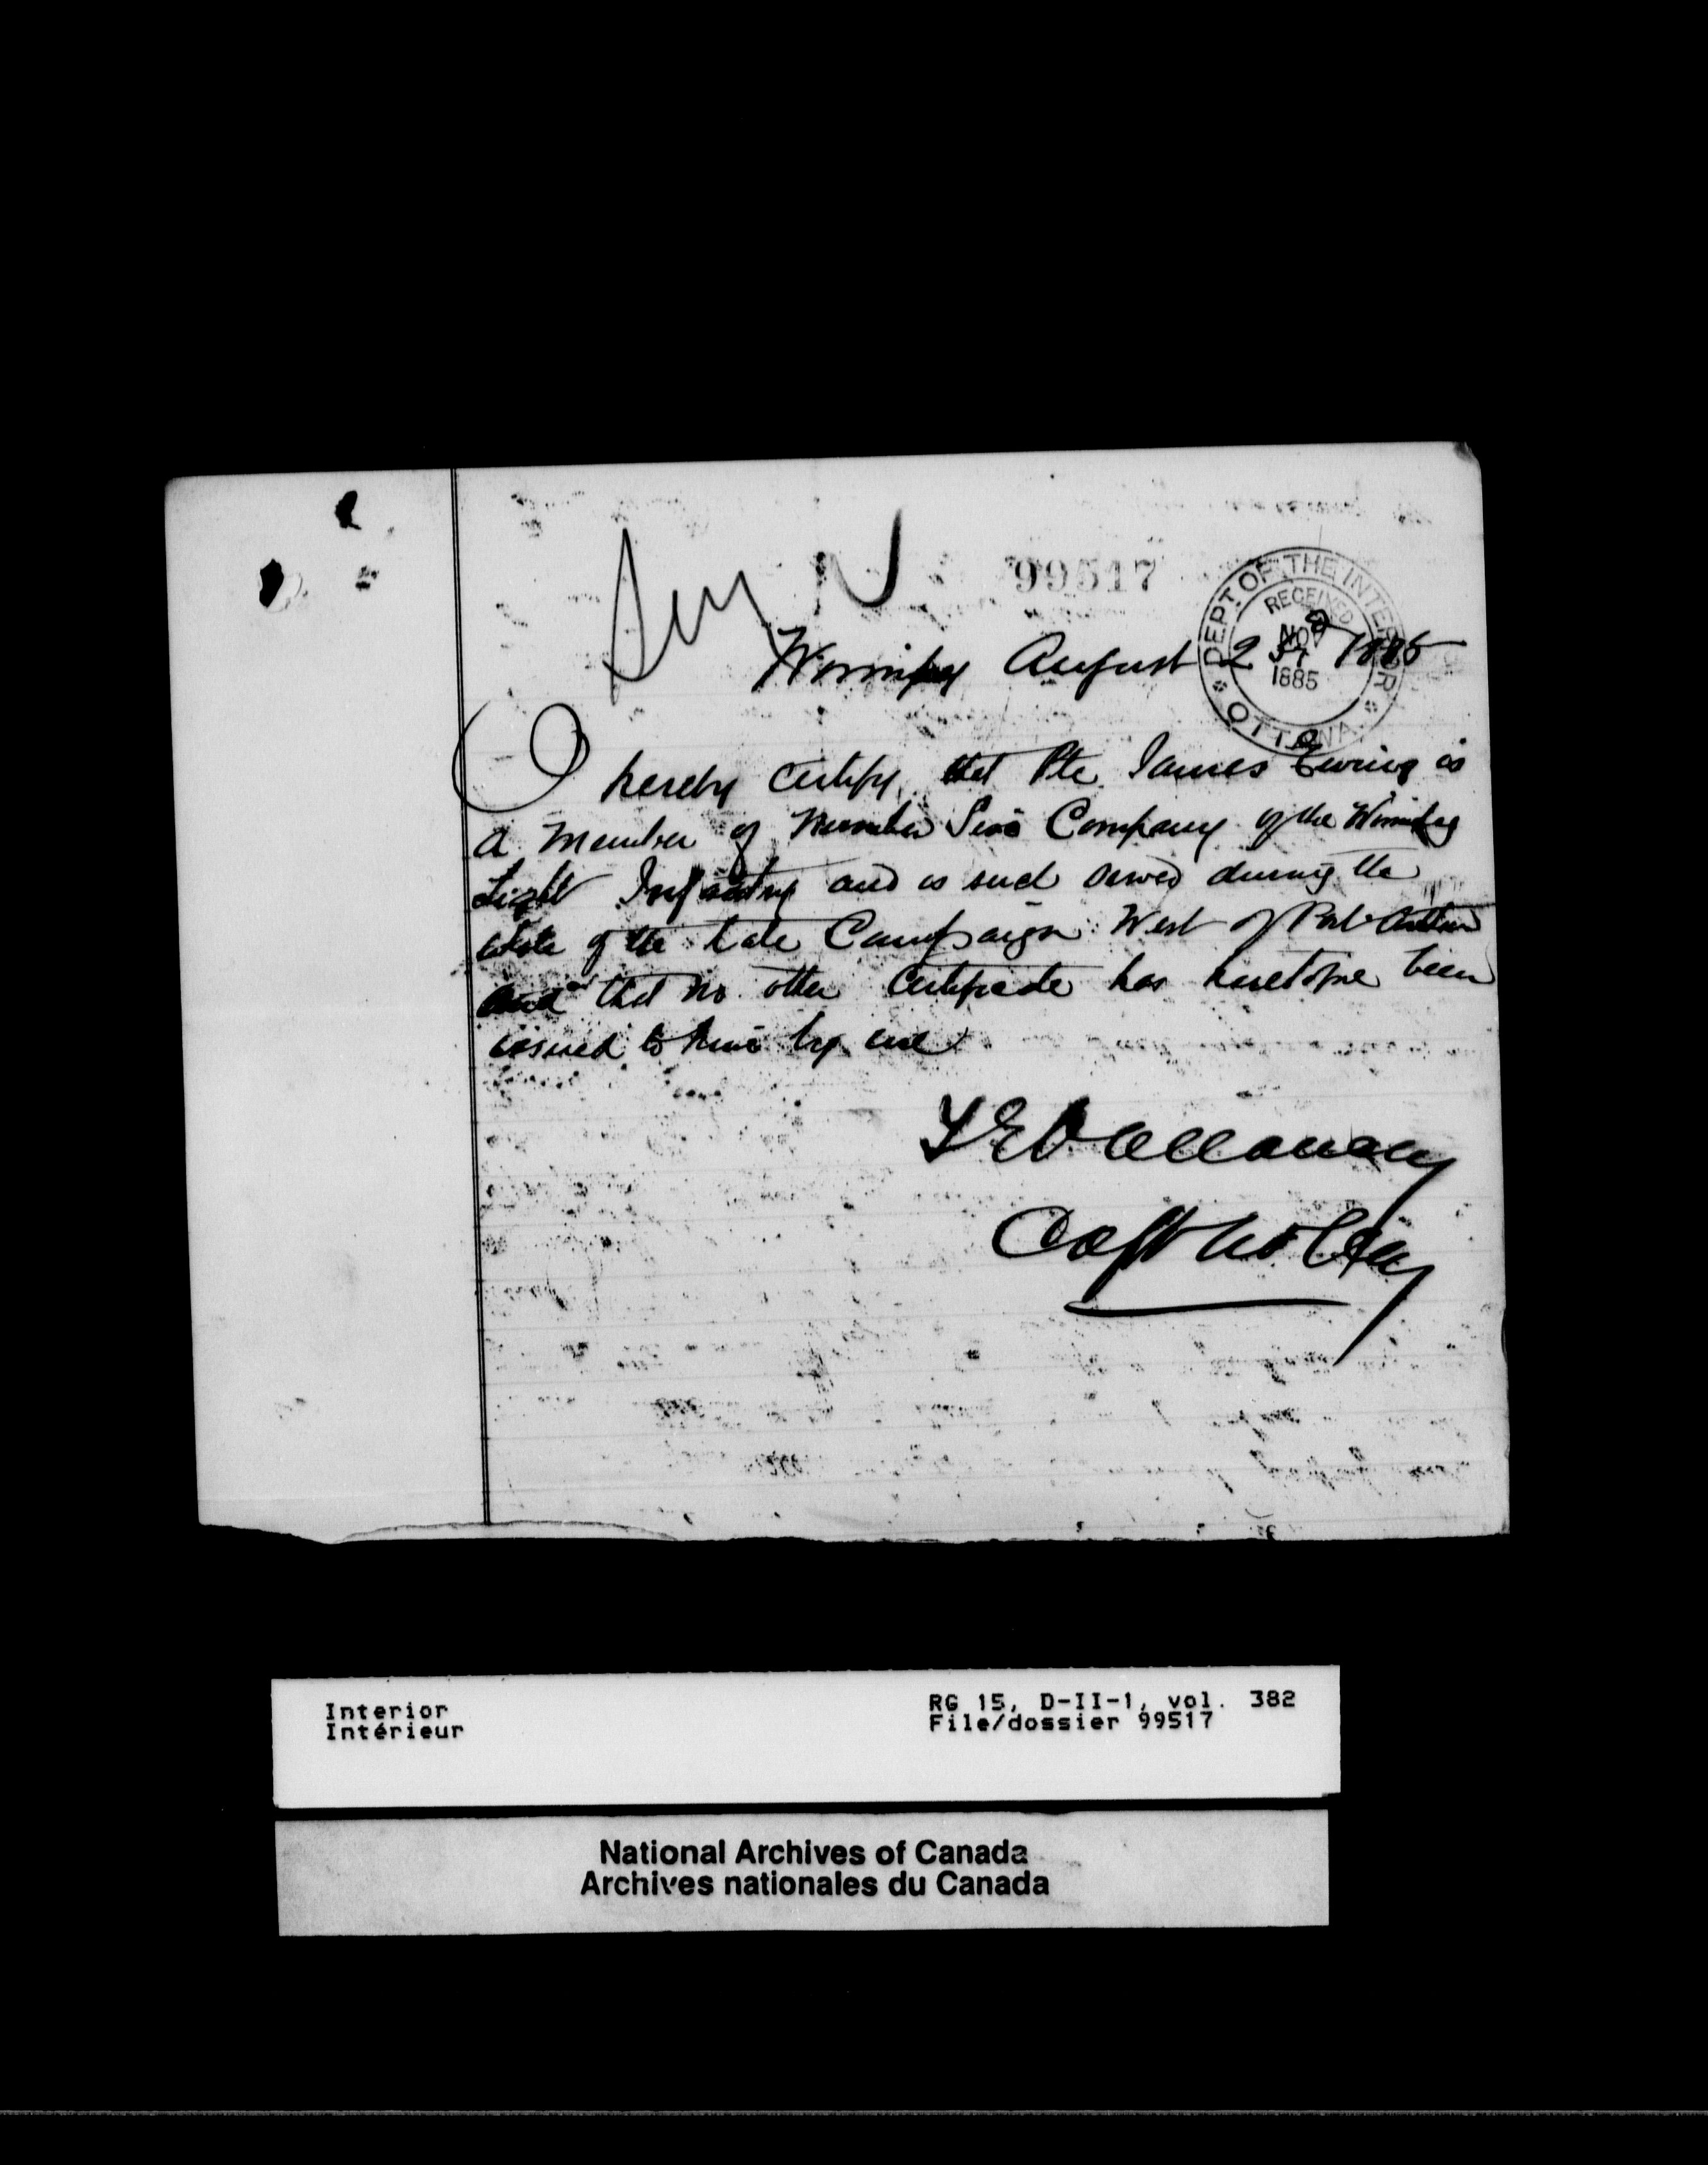 99517
DEPT OF THE INTERIOR
RECEIVED
NOV
1885
OTTAWA
Winnipeg August 1885
I hereby certify that Pte. James Ewing is
a member of Number Company of the Winnipeg
Light Infantry and as such served during the
whole of the late Campaign West of Port Arthur
and that no other Certificate has heretofore been
issued to him by me
Capt No Coy
Interior
Intérieur
RG 15, D-II-1, vol. 382
File/dossier 99517
National Archives of Canada
Archives nationales du Canada